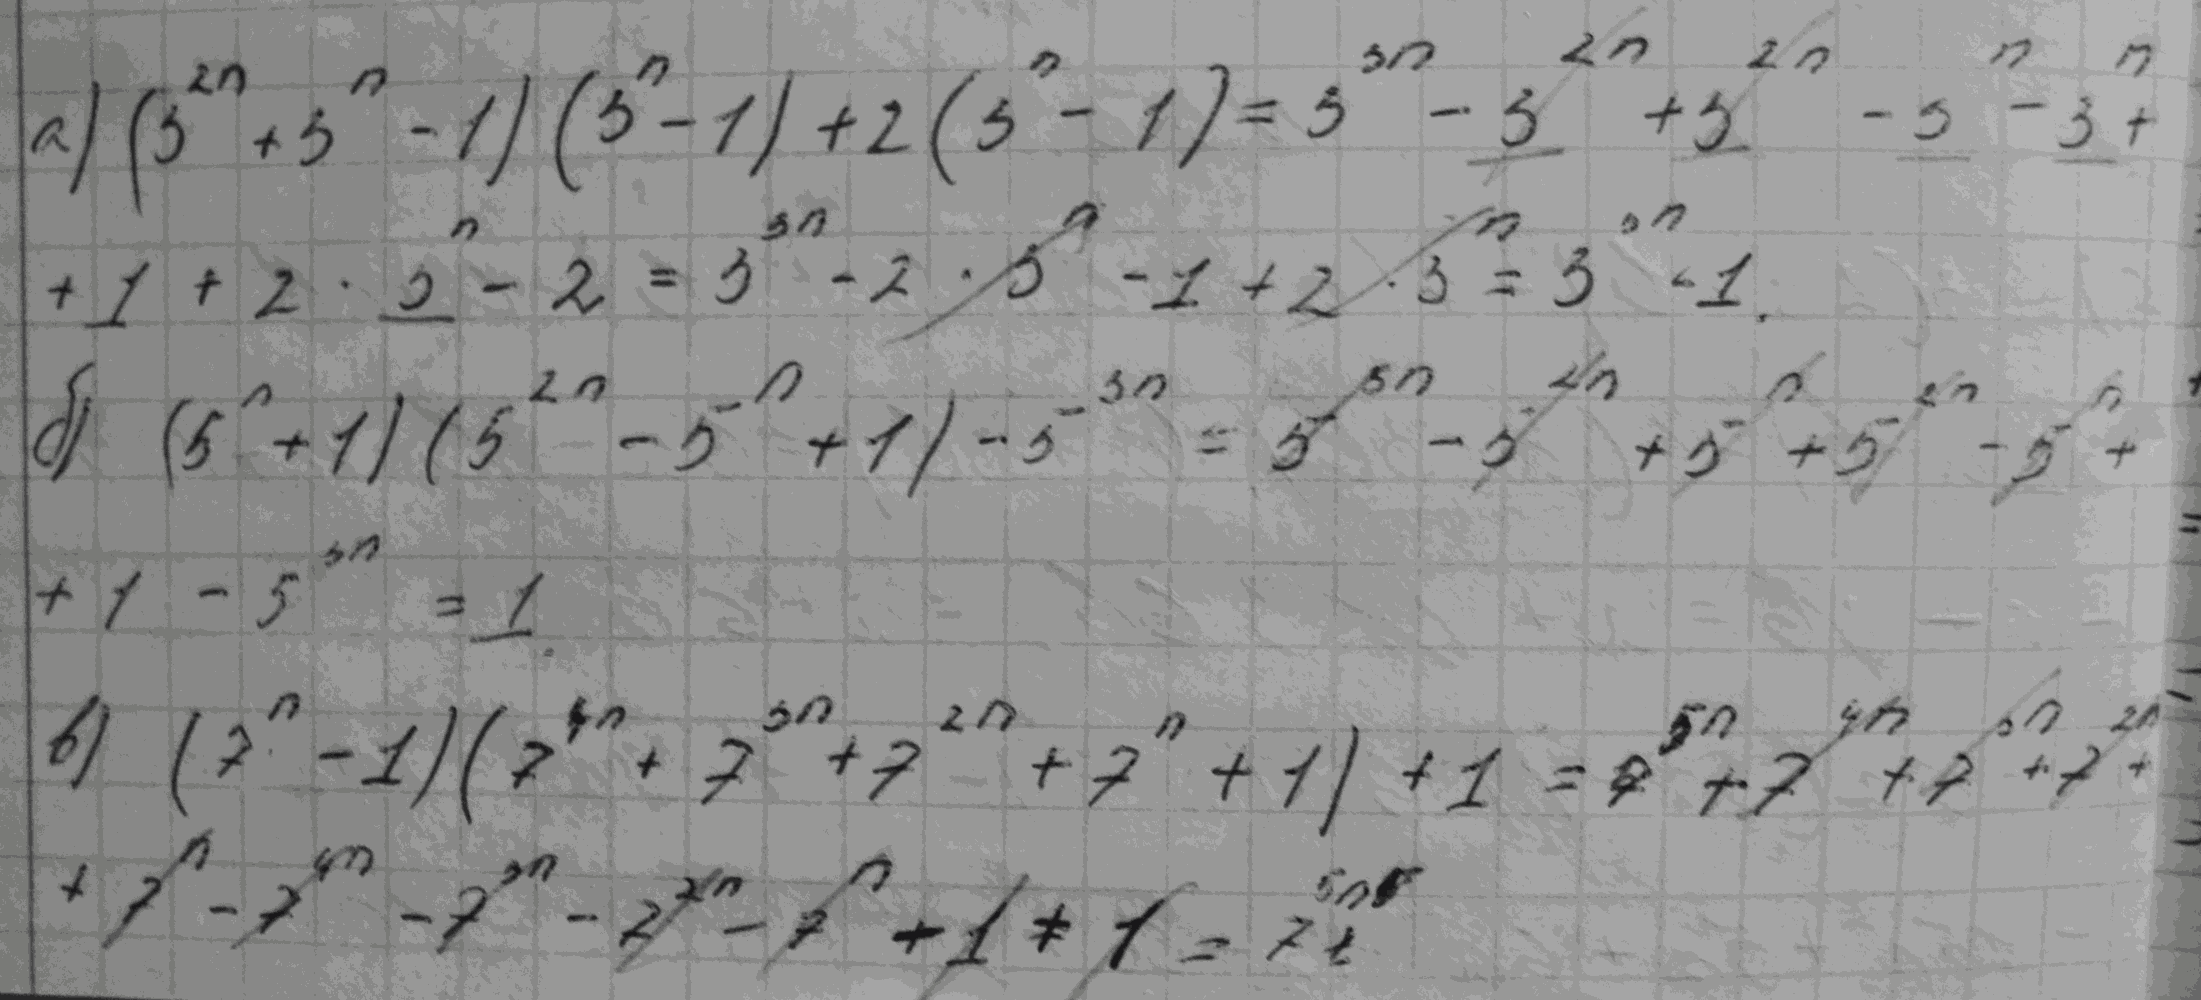 а) (3²ⁿ + 3ⁿ - 1)(3ⁿ - 1) + 2(3ⁿ - 1) = 3³ⁿ - 3²ⁿ + 3²ⁿ - 3ⁿ - 3ⁿ +
+ 1 + 2 · 3ⁿ - 2 = 3³ⁿ - 2 · 3ⁿ - 1 + 2 · 3ⁿ = 3³ⁿ - 1.
б) (5ⁿ + 1)(5²ⁿ - 5ⁿ + 1) - 5³ⁿ = 5³ⁿ - 5²ⁿ + 5ⁿ + 5²ⁿ - 5ⁿ +
+ 1 - 5³ⁿ = 1.
в) (7ⁿ - 1)(7⁴ⁿ + 7³ⁿ + 7²ⁿ + 7ⁿ + 1) + 1 = 7⁵ⁿ + 7⁴ⁿ + 7³ⁿ + 7²ⁿ +
+ 7ⁿ - 7⁴ⁿ - 7³ⁿ - 7²ⁿ - 7ⁿ + 1 + 1 = 7⁵ⁿ